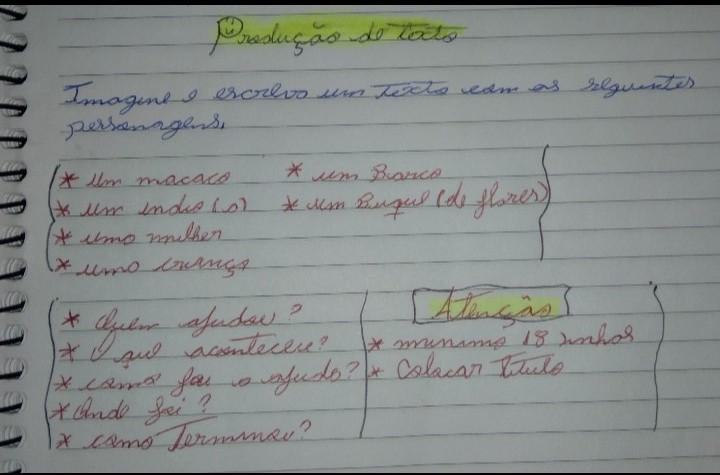 Produção de texto
Imagine e escreva um texto com os seguintes
personagens.
* um macaco
* um índio (a)
* uma mulher
* uma criança
* um Barco
* um Buquê (de flores)
* Quem ajudou?
* O que aconteceu?
* como foi a ajuda?
* Onde foi?
* como Terminou?
Atenção
* mínimo 18 linhas
* Colocar Título